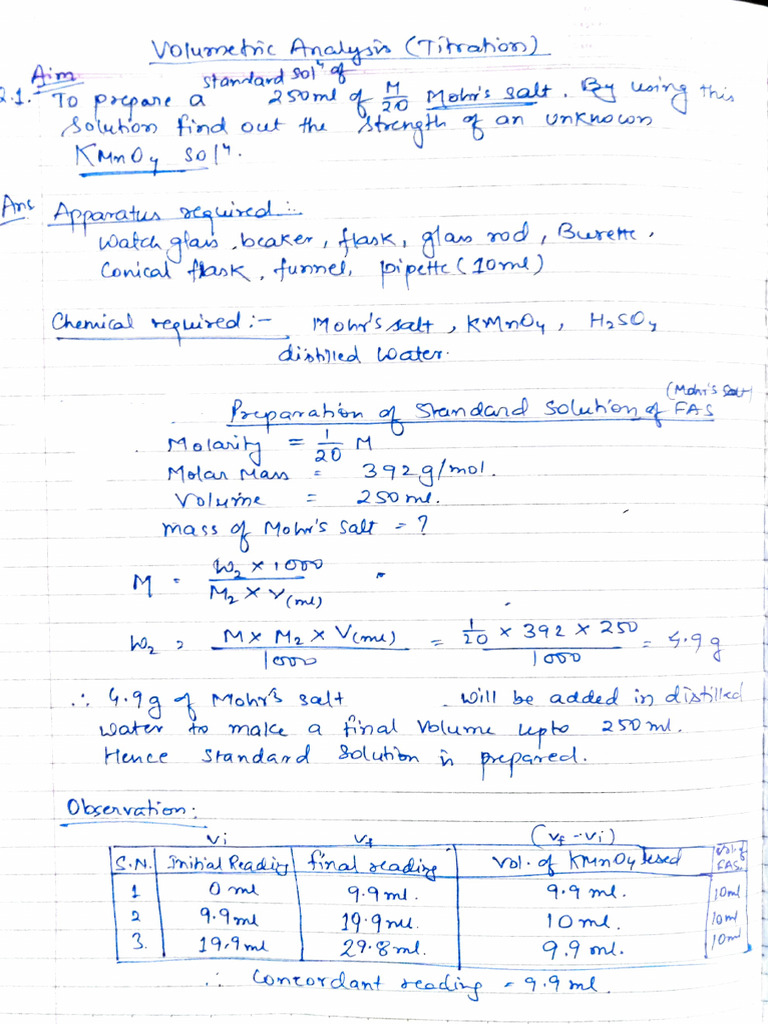 Volumetric Analysis (Titration)
Aim
2.1. To prepare a standard solⁿ of 250ml of M/20 Mohr's salt. By using this
solution find out the strength of an unknown
KMnO4 solⁿ.
Ans Apparatus required :-
Watch glass, beaker, flask, glass rod, Burette,
Conical flask, funnel, pipette (10ml)
Chemical required :- Mohr's salt, KMnO4, H2SO4
distilled water.
Preparation of standard solution of FAS (Mohr's Salt)
Molarity = 1/20 M
Molar Mass = 392 g/mol.
Volume = 250 ml.
mass of Mohr's Salt = ?
M = W2 × 1000 / M2 × V(ml)
W2 = M × M2 × V(ml) / 1000 = 1/20 × 392 × 250 / 1000 = 4.9 g
∴ 4.9g of Mohr's salt will be added in distilled
water to make a final volume upto 250 ml.
Hence standard solution is prepared.
Observation:
Vi Vf (Vf - Vi)
S.N. Initial Reading final reading Vol. of KMnO4 used Vol. of FAS
1 0 ml 9.9 ml. 9.9 ml. 10ml
2 9.9 ml 19.9 ml 10 ml. 10ml
3. 19.9 ml 29.8 ml. 9.9 ml. 10ml
∴ Concordant reading = 9.9 ml.